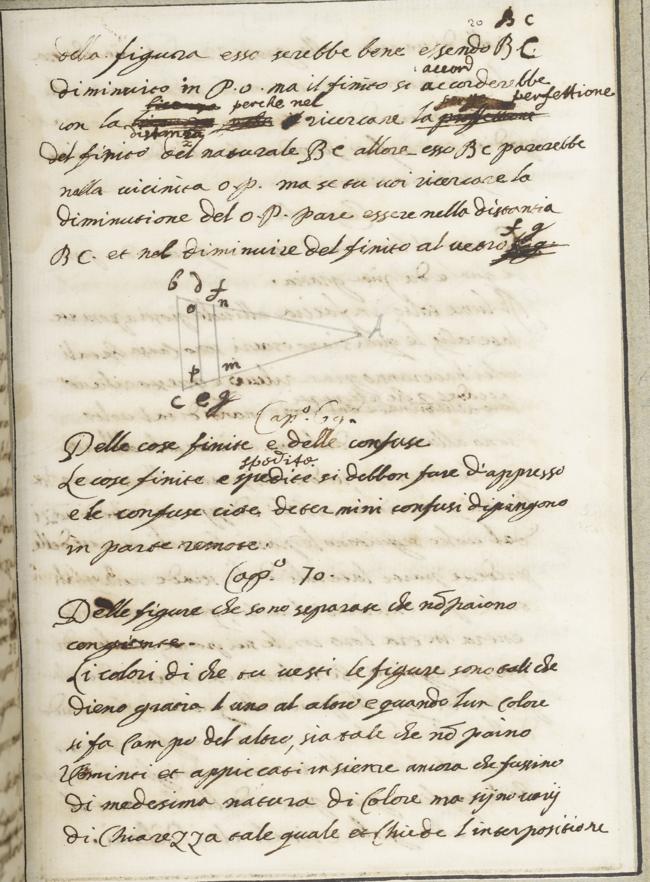 20 B C
della figura esso serebbe bene essendo B C.
accord
diminuito in P. o. ma il finito si accorderebbe
perche nel perfettione
con la ricercare la
distanza
del finito del naturale B C allora esso B C parerebbe
nella uicinita o. p. ma se tu uoi ricercare la
diminutione del o. P. pare essere nella distantia
f g
B C. et nel diminuire del finito al uetro
b d f
o n
A
p m
c e g
Cap.º 69.
Delle cose finite e delle confuse
spedite
Le cose finite e spedite si debbon fare d'appresso
e le confuse cioe de termini confusi dipingono
in parte remote.
Capº. 70.
Delle figure che sono separate che nõ paiono
congiunte.
Li colori di che tu uesti le figure sono tali che
dieno gratia l uno al altro e quando l'un Colore
si fa Campo del altro, sia tale che nõ paino
et appiccati insieme ancora che fussino
di medesima natura di Colore ma sijno uarij
di. Chiarezza tale quale et Chiede l'interpositione